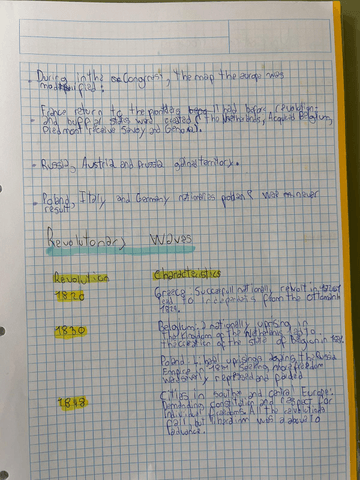 - During in the Congress, the map the europe was
modified:
- France return to the frontiers it had before revolution
and buffer states were created (the Netherlands, Acquired Belgium,
Piedmont receive Savoy and Genova).
- Russia, Austria and Prussia gained territory.
- Poland, Italy and Germany nationalities problem were never
result.
Revolutionary Waves
Revolution Characteristics
1820
Greece. Succesfull nationally revolt in
led to independens from the Ottoman in
1829.
1830
Belgium: a nationally uprising in
the Kingdom of the Netherlands led to
the creation of the state of Belgium in
Poland: Liberal uprisings against the Russia
Empire in seeking more freedom
was severly repressed and
1848
Cities in south and central Europe:
Demanding constitution and respect for
individual freedoms. All the revolutions
fail, but liberalism was about to
advance.